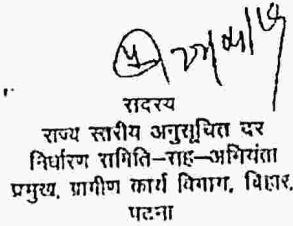 सदस्य
राज्य स्तरीय अनुसूचित दर
निर्धारण समिति-सह-अभियंता
प्रमुख, ग्रामीण कार्य विभाग, बिहार,
पटना